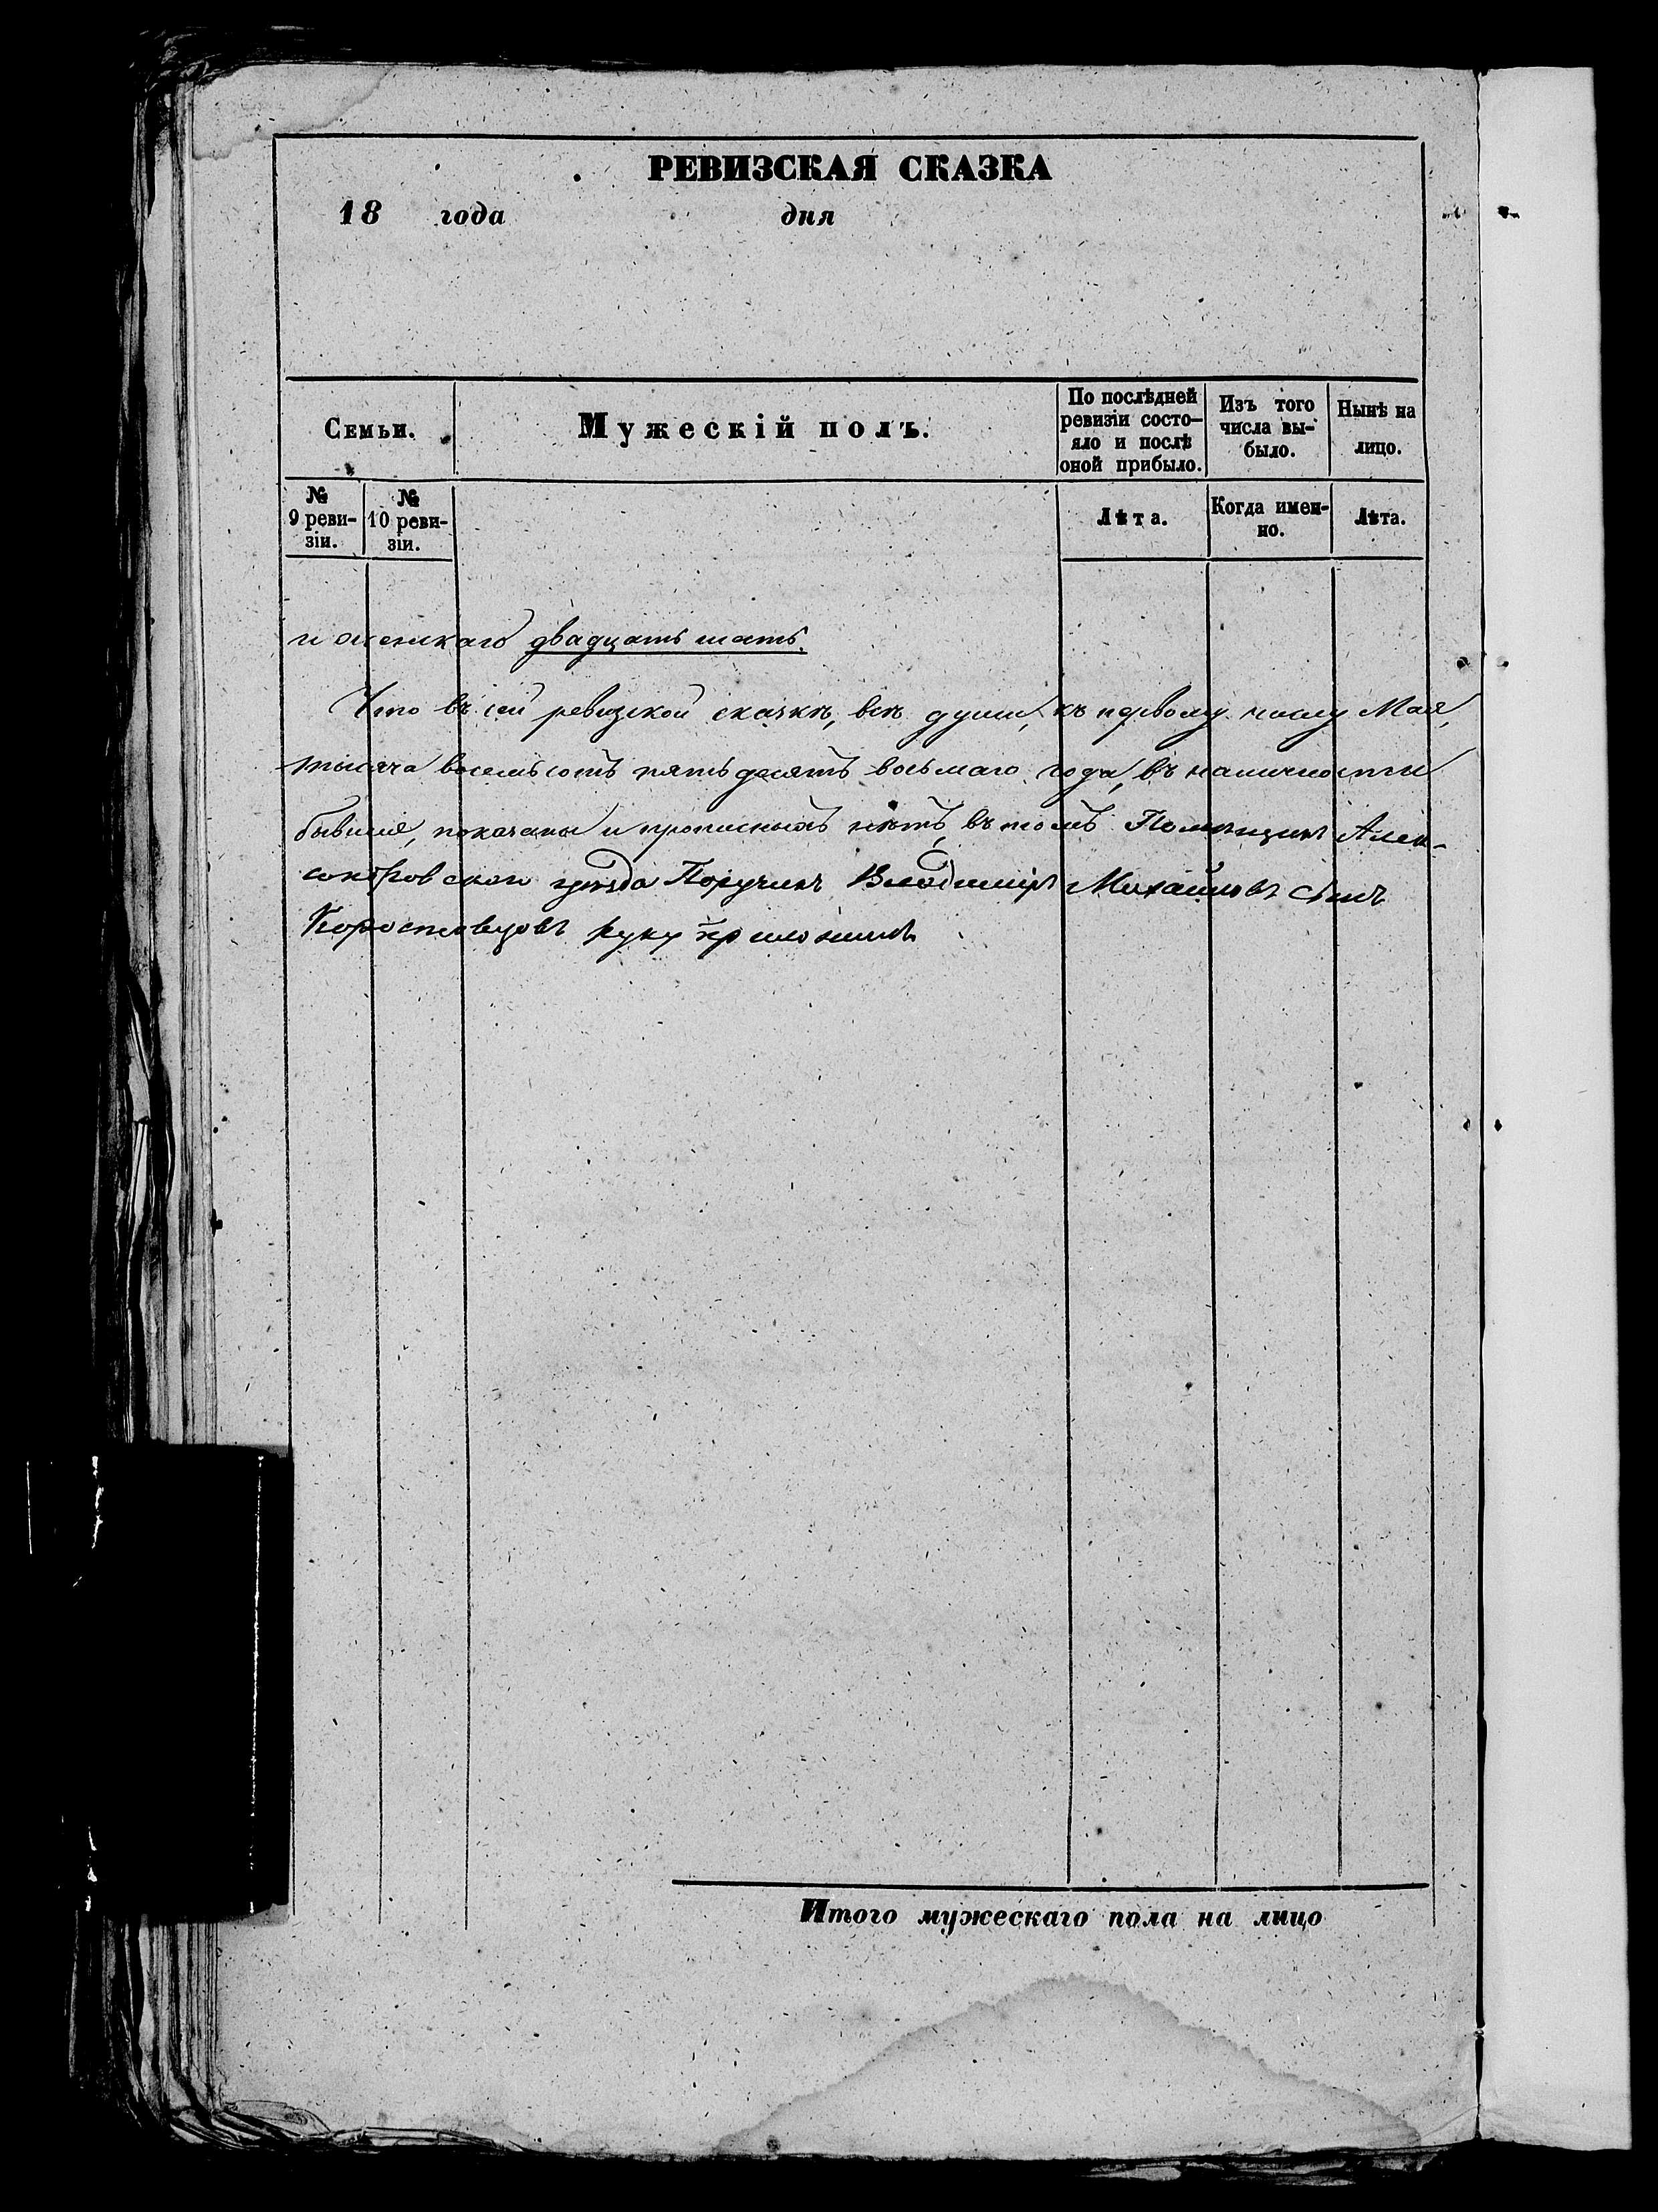 РЕВИЗСКАЯ СКАЗКА
18 года дня
Семьи.
Мужескій полъ.
По послѣдней
ревизіи состо-
яло и послѣ
оной прибыло.
Изъ того
числа вы-
было.
Нынѣ на
лицо.
№
9 реви-
зіи.
№
10 реви-
зіи.
Лѣта.
Когда имен-
но.
Лѣта.
и женскаго двадцать шесть.
Что въ сей ревизской сказкѣ, всѣ души, къ первому числу Мая,
тысяча восемьсотъ пятьдесятъ восьмаго года, въ наличности
бывшіе, показаны и прописныхъ нѣтъ, въ томъ Помѣщикъ Алек-
сандровскаго уѣзда Поручикъ Владиміръ Михайловъ сынъ
Коростовцовъ руку приложилъ
Итого мужескаго пола на лицо